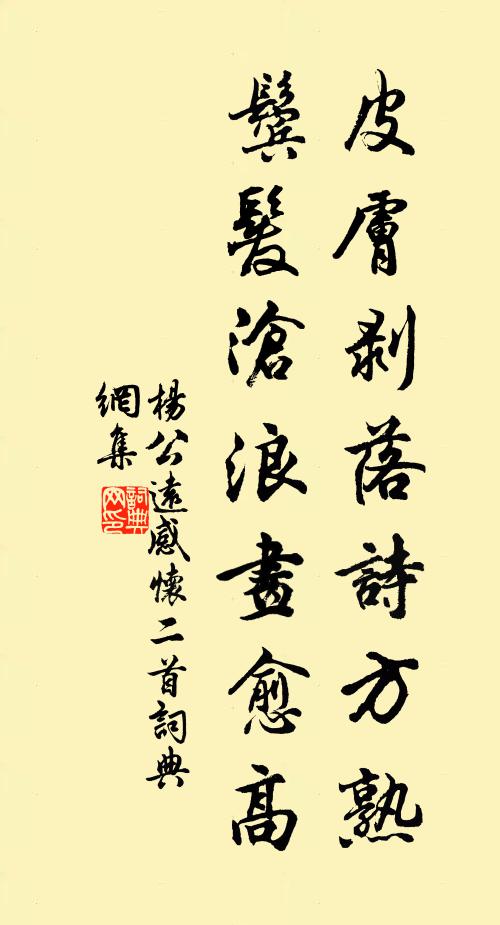 皮膚剥落詩方熟
鬢髮滄浪畫愈高
楊公遠感懷二首詞典
網集
詞典网印